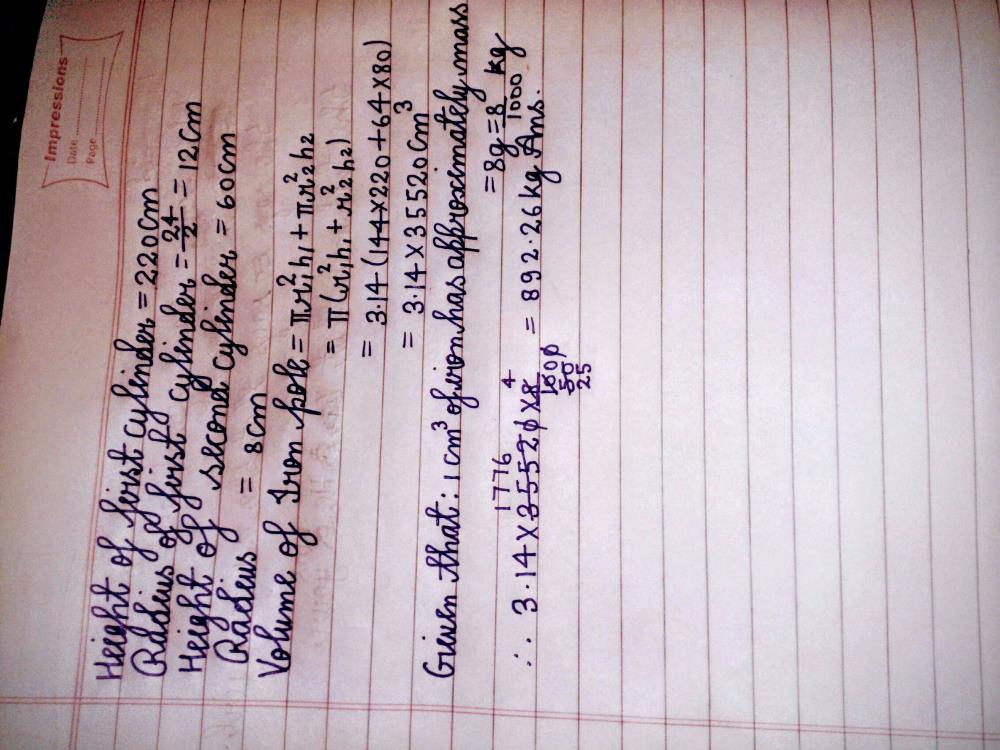 Impressions
Date
Page
Height of first cylinder = 220cm
Radius of first cylinder = 24/2 = 12cm
Height of second cylinder = 60cm
Radius = 8cm
Volume of Iron pole = πr₁²h₁ + πr₂²h₂
= π(r₁²h₁ + r₂²h₂)
= 3.14(144×220+64×80)
= 3.14×35520cm³
Given that: 1cm³ of iron has approximately mass
= 8g = 8/1000 kg
∴ 3.14×35520×8/1000 = 892.26kg Ans.
1776 4
50
25